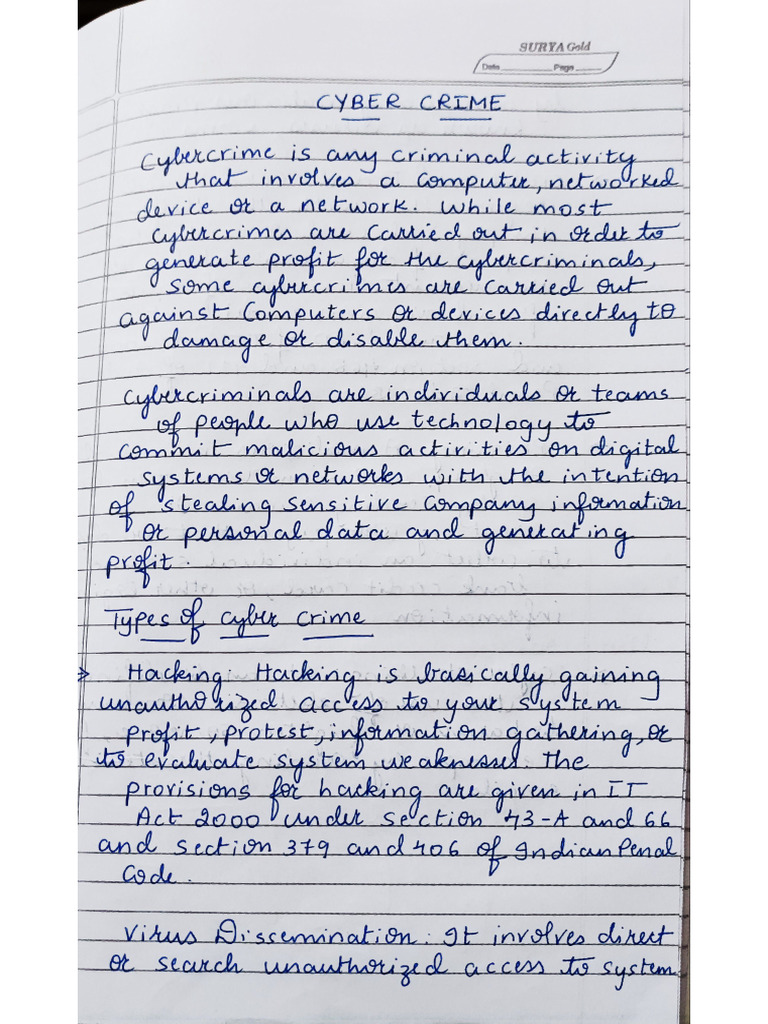 SURYA Gold
Date Page
CYBER CRIME
Cybercrime is any criminal activity
that involves a computer, networked
device or a network. While most
cybercrimes are carried out in order to
generate profit for the cybercriminals,
some cybercrimes are carried out
against computers or devices directly to
damage or disable them.
Cybercriminals are individuals or teams
of people who use technology to
commit malicious activities on digital
systems or networks with the intention
of stealing sensitive company information
or personal data and generating
profit.
Types of cyber crime
> Hacking: Hacking is basically gaining
unauthorized access to your system
profit, protest, information gathering, or
to evaluate system weaknesses. The
provisions for hacking are given in IT
Act 2000 under section 43-A and 66
and section 379 and 406 of Indian Penal
Code.
Virus Dissemination: It involves direct
or search unauthorized access to system